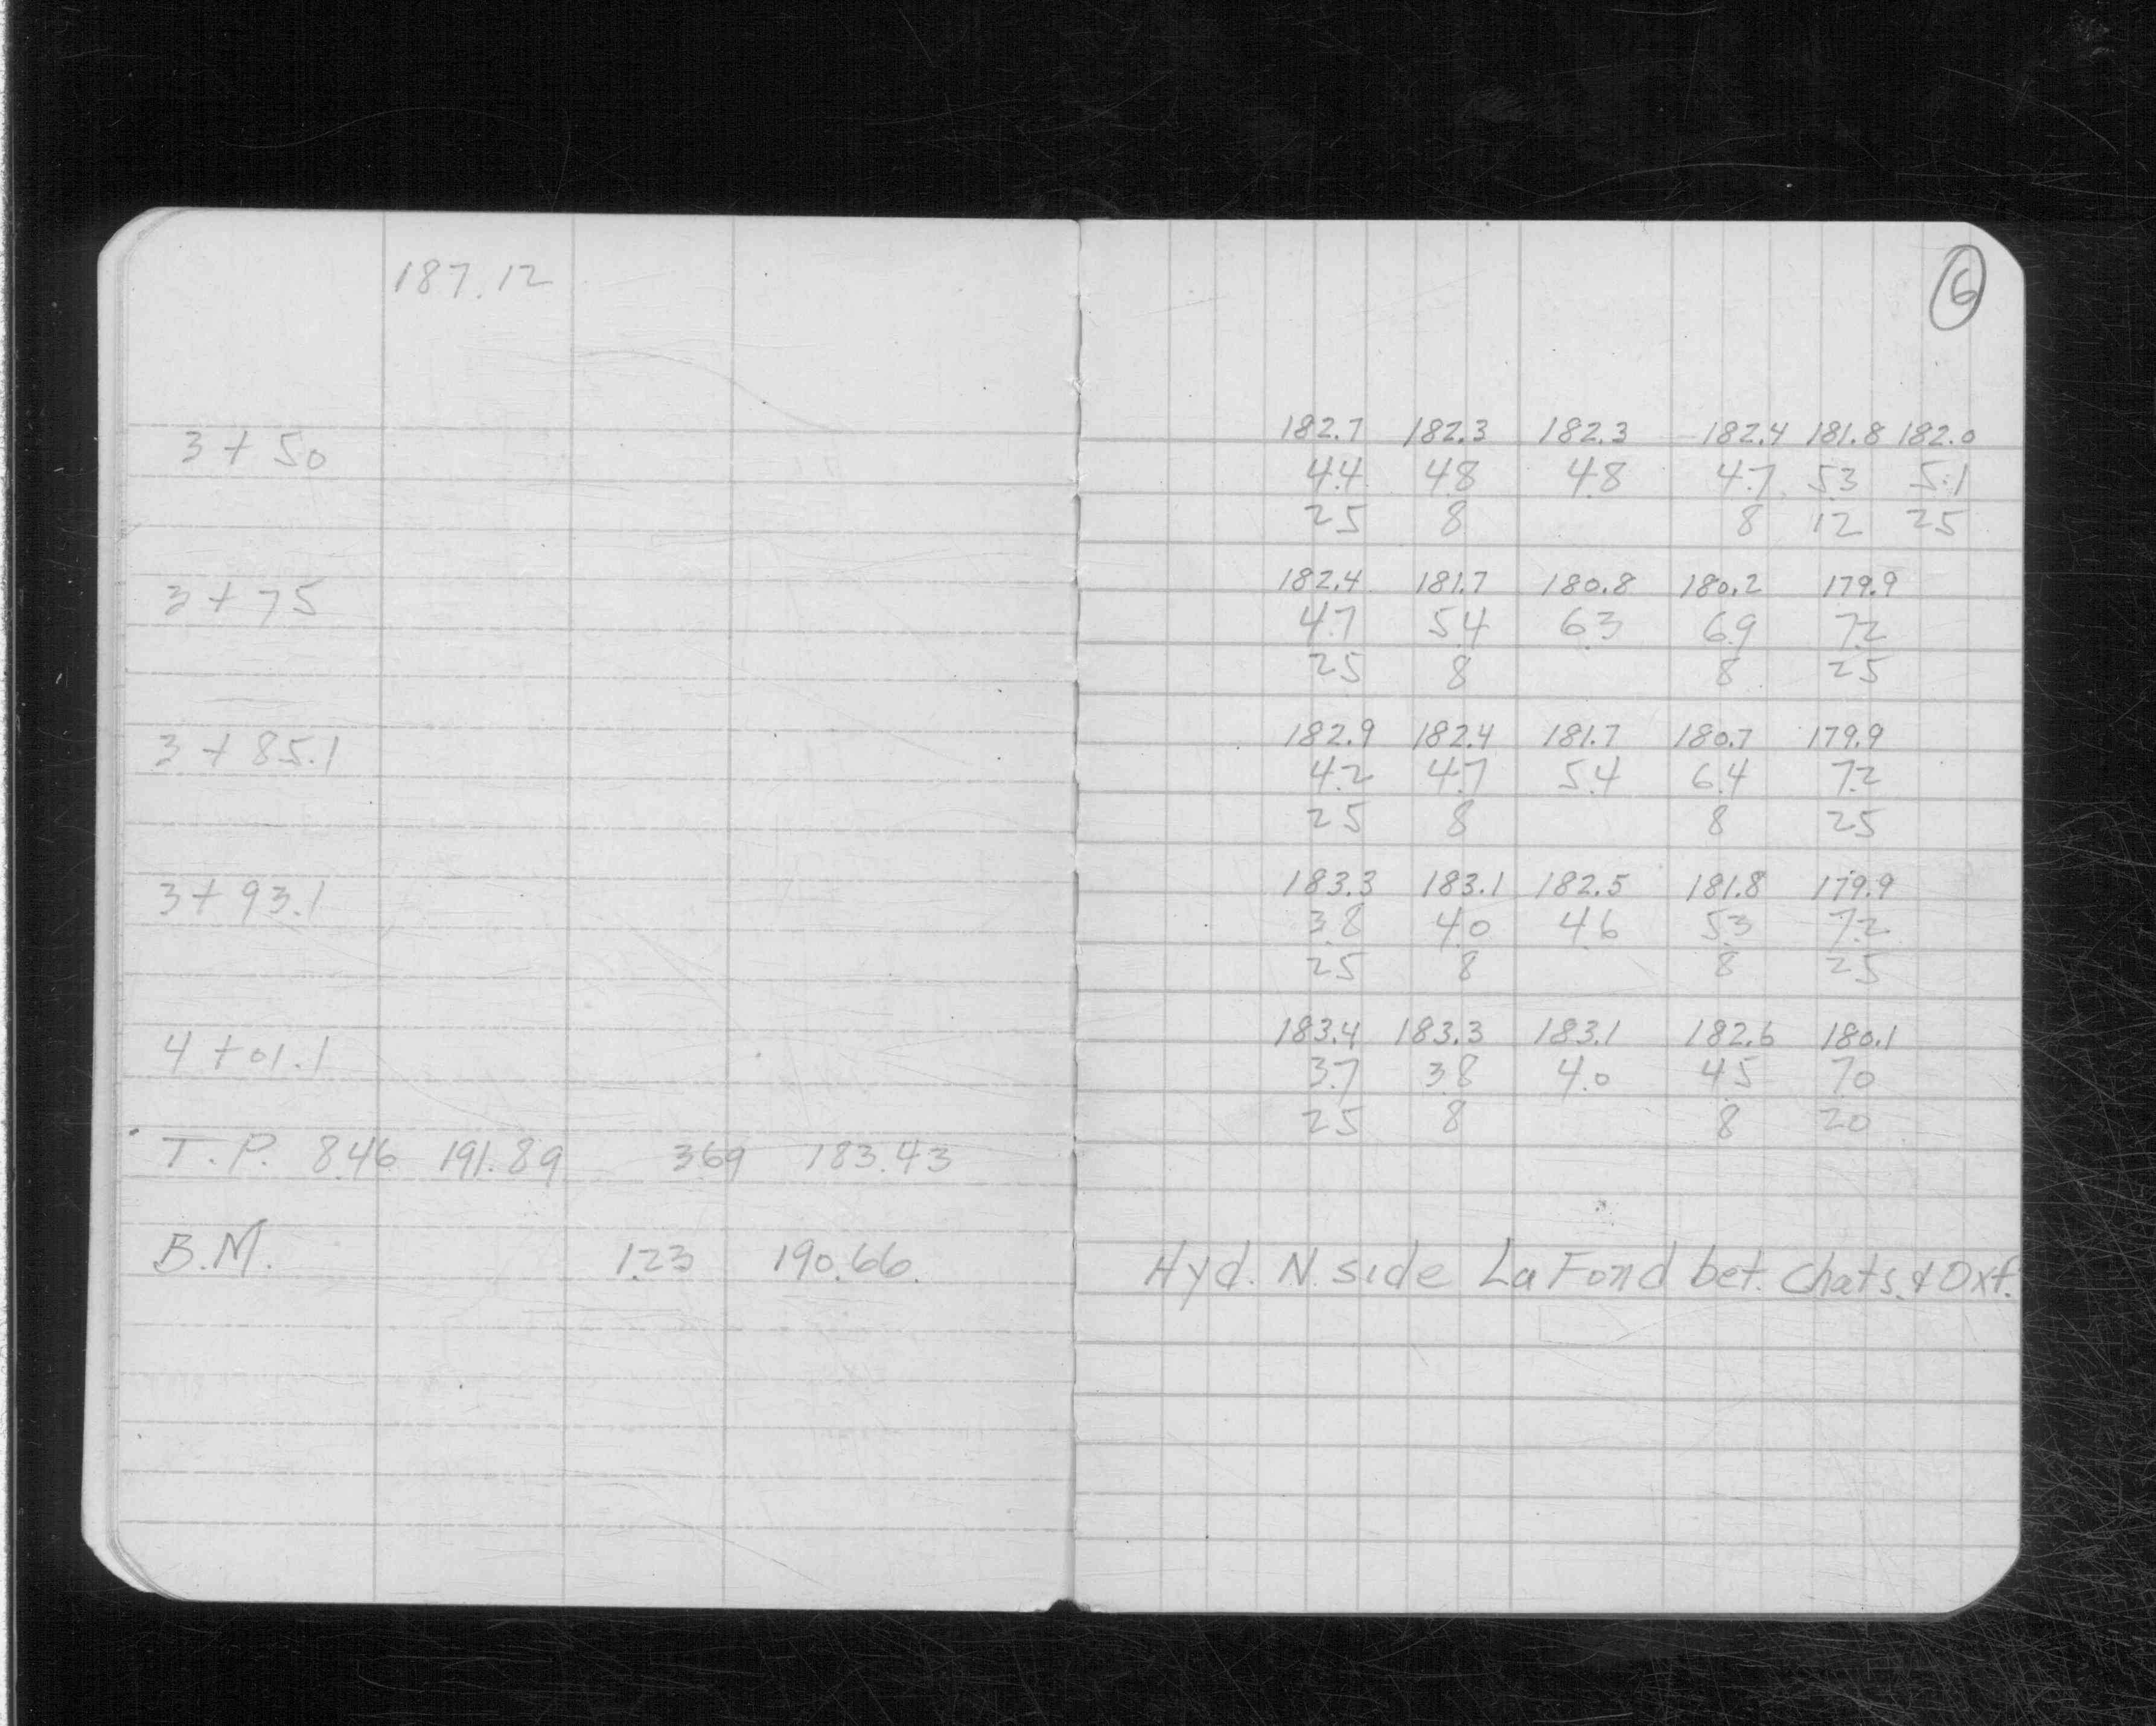 187.12
3 + 50
3 + 75
3 + 85.1
3 + 93.1
4 + 01.1
T.P. 8.46 191.89 3.69 183.43
B.M. 1.23 190.66
6
182.7 182.3 182.3 182.4 181.8 182.0
4.4 4.8 4.8 4.7 5.3 5.1
25 8 8 12 25
182.4 181.7 180.8 180.2 179.9
4.7 5.4 6.3 6.9 7.2
25 8 8 25
182.9 182.4 181.7 180.7 179.9
4.2 4.7 5.4 6.4 7.2
25 8 8 25
183.3 183.1 182.5 181.8 179.9
3.8 4.0 4.6 5.3 7.2
25 8 8 25
183.4 183.3 183.1 182.6 180.1
3.7 3.8 4.0 4.5 7.0
25 8 8 20
Hyd. N. side La Fond bet. Chats. & Oxf.